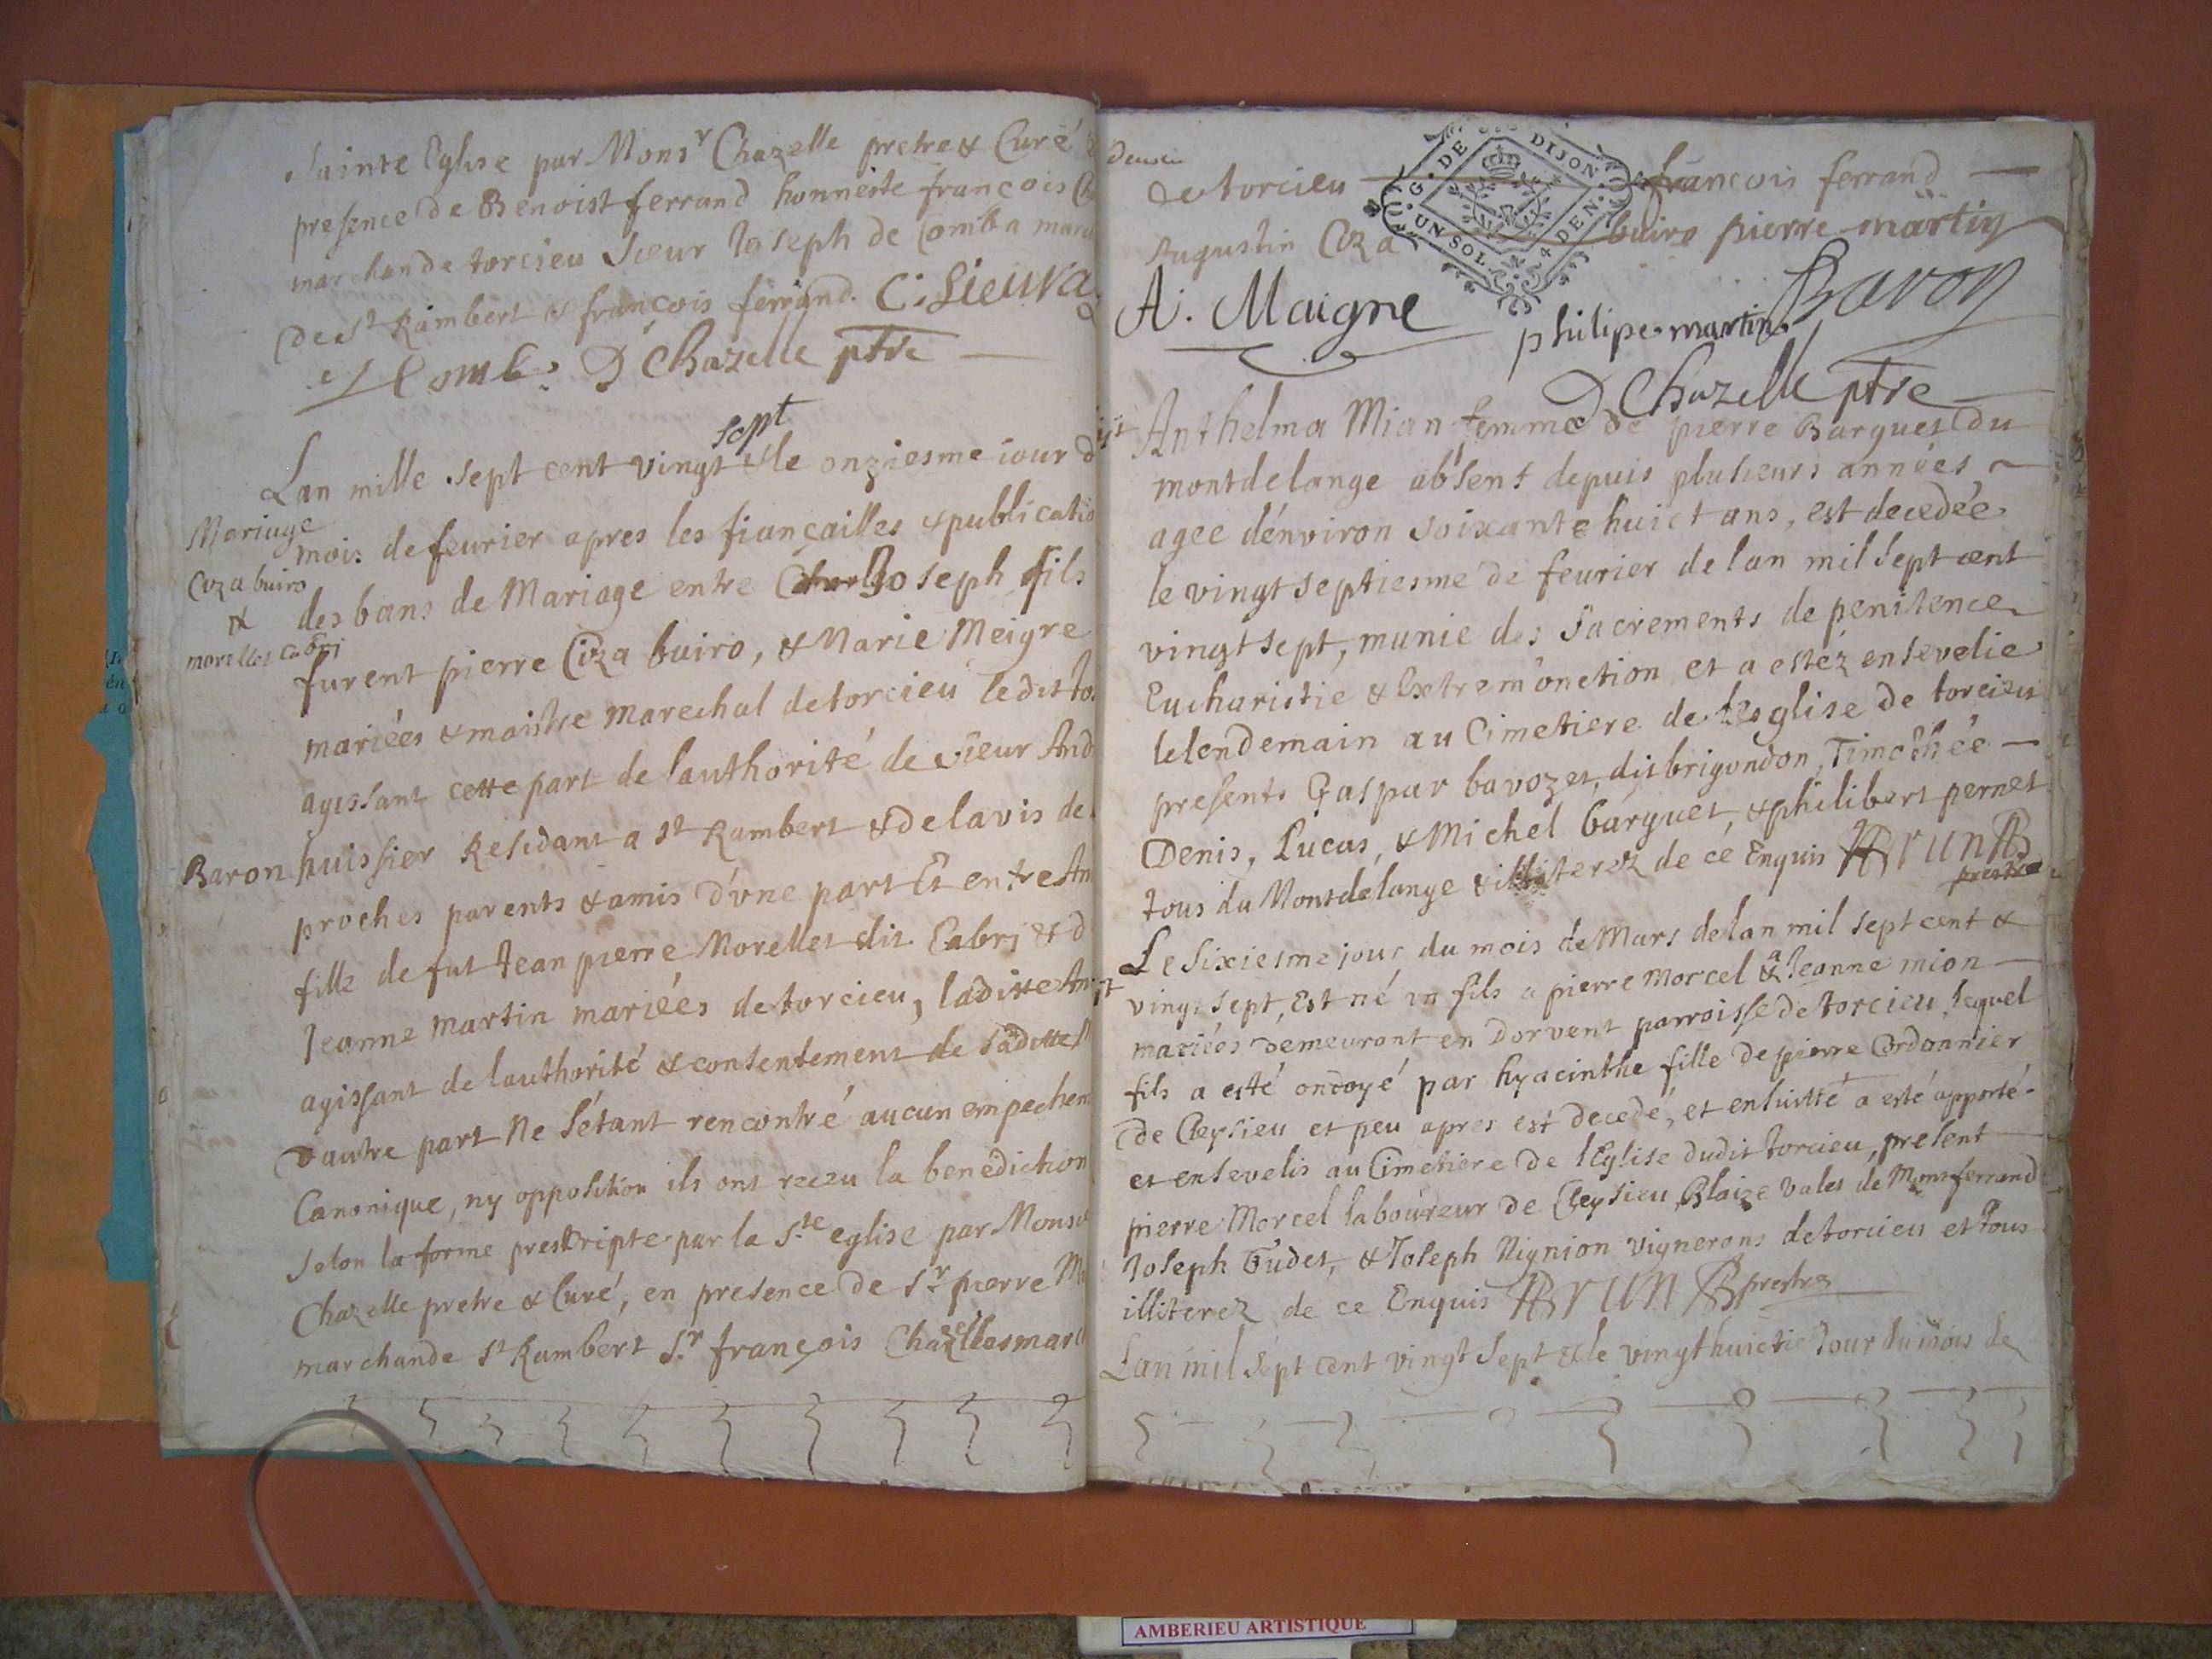 Sainte Eglise par Monsr Chazelle pretre & Curé
presence de Benoist ferrand honneste françois
marchand de torcieu Sieur Joseph de Comba
de St Rambert & françois ferrand. C. Lieuva
Comb. D Chazelle ptre
sept
Lan mille sept cent vingt & le onziesme iour
Mariage
Coza buiro
&
morellet cabri
mois de feurier apres les fiançailles & publicatio
des bans de Mariage entre Joseph fils
furent pierre Coza buiro, & Marie Meigre
mariées & maistre marechal de torcieu ledit
agissant cette part de lauthorité de sieur
Baron huissier Residant a St Rambert & de lavis de
proches parents & amis d'vne part Et entre
fille de fut Jean pierre Morellet dit Cabri &
Jeanne martin mariéés de torcieu, laditte
agissant de lauthorité & consentement de saditte
d'autre part Ne s'étant rencontré aucun empechem
Canonique, ny opposition ils ont receu la benediction
selon la forme prescripte par la Ste eglise par
Chazelle pretre & Curé, en presence de Sr pierre
marchand de St Rambert Sr françois Chazelles
de torcieu francois ferrand
Augustin Coza buiro pierre martin
G. DE DIJON. UN SOL. 4 DEN.
A. Maigne philipe martin Baron
D Chazelle ptre
Anthelma Mian femme de pierre Barguet du
montdelange absent depuis plusieurs années
agee d'environ soixante huict ans, est decedée
le vingt septiesme de feurier de lan mil sept cent
vingt sept, munie des sacrements de penitence
Eucharistie & Extrem'onction et a estéz ensevelie
lelendemain au Cimetiere de lesglise de torcieu
presents Gaspar bavozet, dit brigondon, Timothée
Denis, Lucas, & Michel barguet, & philibert pernet
tous du Montdelange & illiterez de ce Enquis Brun
prestre
Le sixiesme jour du mois de Mars de lan mil sept cent &
vingt sept, Est né vn fils a pierre Morcel & a Jeanne mion
mariées demeurant en Dorvent parroisse de torcieu, lequel
fils a esté ondoyé par hyacinthe fille de pierre Cordonnier
de Cleysieu et peu apres est decedé, et ensuitté a esté apporté
et ensevelis au Cimetiere de l'Eglise dudit torcieu, present
pierre Morcel laboureur de Cleysieu, Blaize valet de Montferrand
Joseph Gudet, & Joseph Nignion vignerons de torcieu et tous
illiterez de ce Enquis Brun prestre
Lan mil sept cent vingt sept & le vingt huictie jour du mois de
AMBERIEU ARTISTIQUE